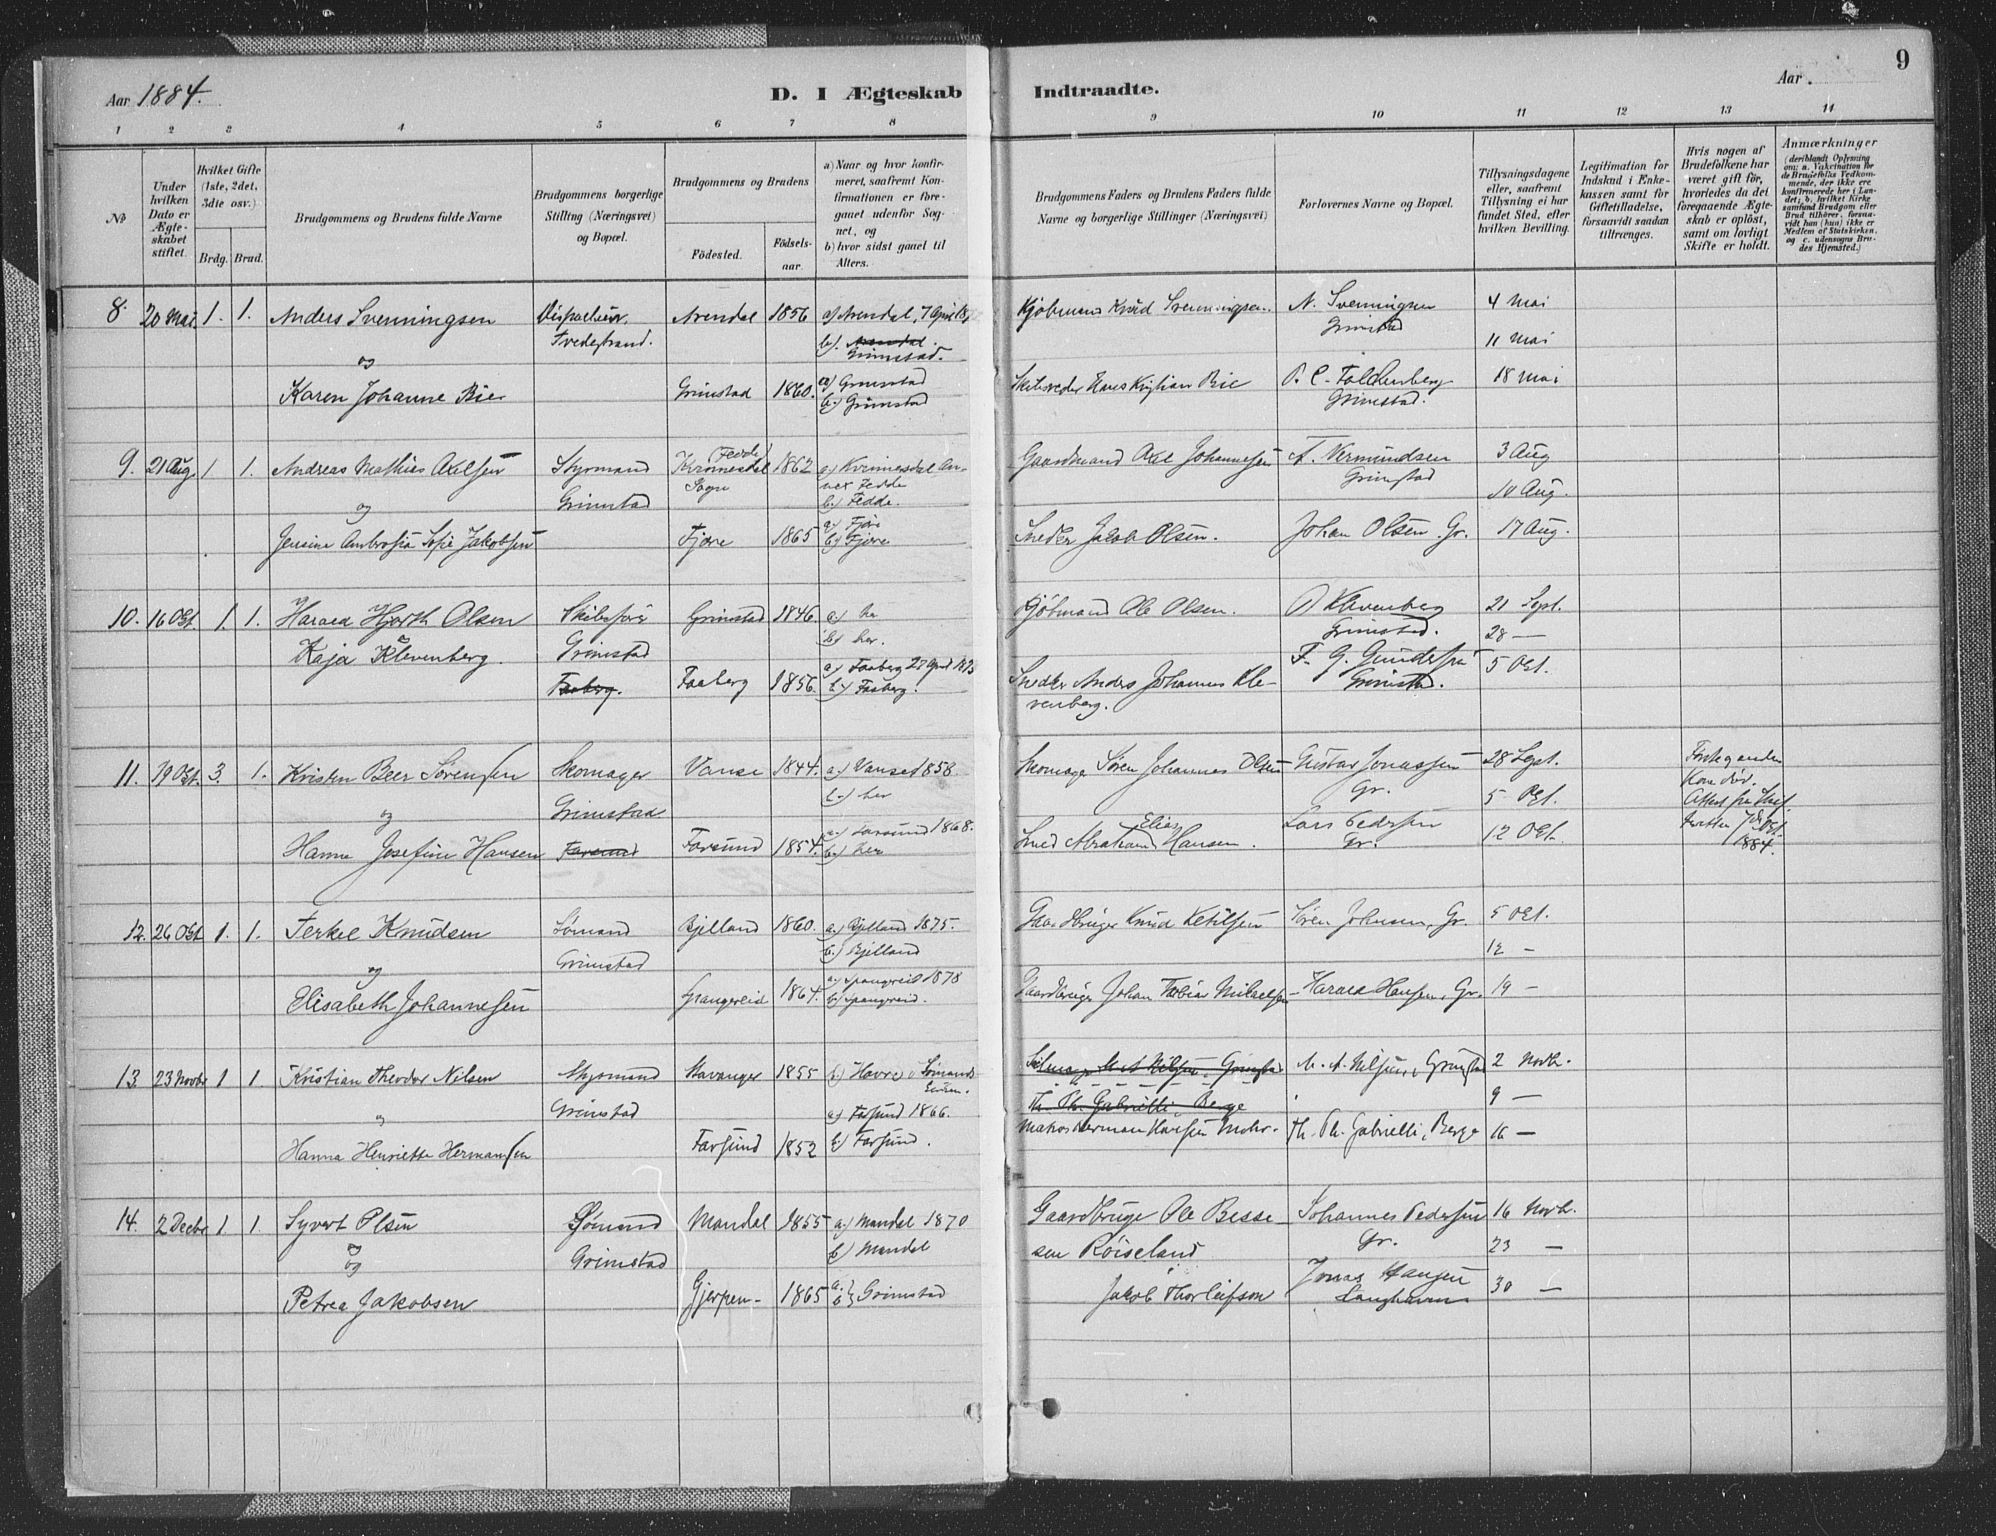 Aar 1884.
D. I Ægteskab Indtraadte.
Aar
9
1 2 3 4 5 6 7 8 9 10 11 12 13 14
No
Under hvilken Dato er Ægteskabet stiftet.
Hvilket Gifte (1ste, 2det, 3die osv.)
Brdg. Brud.
Brudgommens og Brudens fulde Navne
Brudgommens borgerlige Stilling (Næringsvei) og Bopæl.
Brudgommens og Brudens
Fødested.
Fødselsaar
a) Naar og hvor konfirmeret, saafremt Konfirmationen er foregaaet udenfor Sognet, og
b) hvor sidst gaaet til Alters.
Brudgommens Faders og Brudens Faders fulde Navne og borgerlige Stillinger (Næringsvei)
Forlovernes Navne og Bopæl.
Tillysningsdagene eller, saafremt Tillysning ei har fundet Sted, efter hvilken Bevilling.
Legitimation for Indskud i Enkekassen samt for Giftetilladelse, forsaavidt saadan tiltrænges.
Hvis nogen af Brudefolkene har været gift før, hvorledes da det foregaaende Ægteskab er opløst, samt om lovligt Skifte er holdt.
Anmærkninger
(deriblandt Oplysning om: a. Vakcination for de Brudefolks Vedkommende, der ikke ere konfirmerede her i Landet; b. hvilket Kirkesamfund Brudgom eller Brud tilhører, forsaavidt han (hun) ikke er Medlem af Statskirken, og c. udensogns Brudes Hjemsted.)
8. 20 Mai 1. 1. Anders Svenningsen
Tvedestrand.
Arendal 1856 a) Arendal, 7 April
b). Arendal. Grimstad.
Kjøbmand Knud Svenningsen.
N. Svenningsen Grimstad
4 Mai
11 Mai
og
Karen Johanne Bie
Grimstad 1860. a) Grimstad
b.) Grimstad
Hans Kristian Bie
P. C. Faldenberg Grimstad.
18 Mai
9. 21 Aug 1. 1. Andreas Mathias Axelsen
Styrmand
Grimstad
Fedde Kvinesdal Sogn 1862
a) Kvinesdal Annex Fedde
b.) Fedde.
Gaardmand Axel Johannesen
A. Vermundsen Grimstad
3 Aug
10 Aug.
og
Jensine Ambrosia Sofie Jakobsen
Fjære 1865 a) Fjære
b) Fjære
Snedker Jakob Olsen.
Johan Olsen. Gr.
17 Aug.
10. 16 Okt. 1. 1. Harald Hjorth Olsen
Skibsfører
Grimstad
Grimstad 1846. a) her
b) her.
Kjøbmand Ole Olsen.
O Klevenberg Grimstad.
21 Sept.
28 —
Kaja Klevenberg.
Faaberg.
Faaberg 1856. a) Faaberg
b.) Faaberg.
Snedker Anders Johannes Klevenberg.
F. G. Gundersen Grimstad.
5 Okt.
11. 19 Okt. 3. 1. Kristen Beer Sørensen
Skomager
Grimstad
Vanse 1844. a) Vanse 1858.
b.) her
Skomager Søren Johannes Olsen
Gustav Jonassen Gr.
28 Sept.
5 Okt.
Foregaaende Kone død. Attest fra Skifteretten 7de Okt. 1884.
og
Hanna Josefine Hansen
Farsund
Farsund 1854. a.) Farsund 1868.
b.) her
Smed Abraham Elias Hansen.
Lars Pedersen Gr.
12 Okt.
12. 26 Okt 1. 1. Terkel Knudsen
Sømand
Grimstad
Bjelland 1860. a.) Bjelland 1875.
b.) Bjelland
Gaardbruger Knud Ketilsen
Søren Johnsen, Gr.
5 Okt.
12 —
og
Elisabeth Johannesen
Spangereid 1864. a.) Spangreid 1878
b) Spangreid.
Gaardbruger Johan Tobias Mikaelsen
Harald Hansen, Gr.
19 —
13. 23 Novbr 1 1 Kristian Theodor Nilsen
Styrmand
Grimstad
Stavanger 1855 b) Havre i Sømands
M. A. Nilsen, Grimstad
M. A. Nilsen, Grimstad
2 Novb.
9 —
"
Hanna Henriette Hermansen
Farsund 1852 a) Farsund 1866.
b) Farsund.
Th. Ph. Gabrielli, Berge
Herman Hansen
Th. Ph. Gabrielli, Berge
16 —
14. 2 Decbr 1. 1. Syvert Olsen
Sømand
Grimstad
Mandal 1855 a) Mandal 1870
b) Mandal
Gaardbruger Ole Bessesen Røiseland
Johannes Pedersen Gr.
16 Novb.
23 —
og
Petrea Jakobsen
Gjerpen 1865 a. b } Grimstad
Jakob Thorleifson
Jonas Hansen
30 —